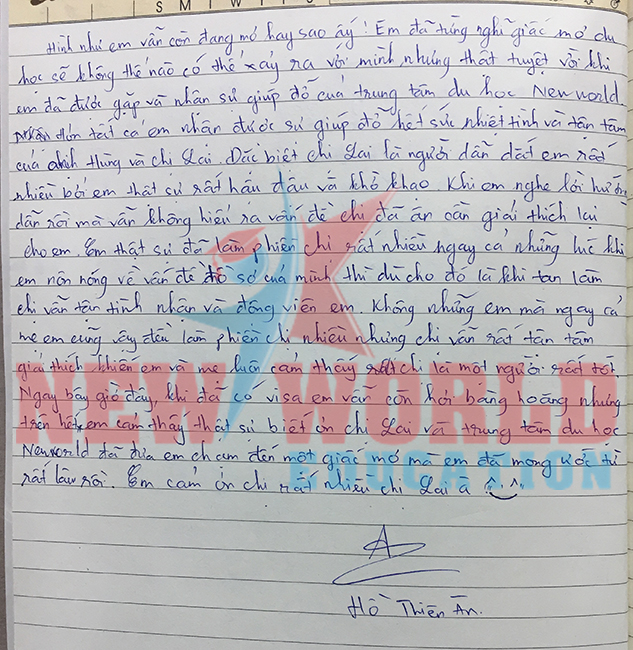 S M T W T F
Hình như em vẫn còn đang mơ hay sao ấy! Em đã từng nghĩ giấc mơ du
học sẽ không thể nào có thể xảy ra với mình nhưng thật tuyệt vời khi
em đã được gặp và nhận sự giúp đỡ của trung tâm du học Newworld
tất cả em nhận được sự giúp đỡ hết sức nhiệt tình và tận tâm
của anh Thùng và chị Lai. Đặc biệt chị Lai là người dẫn dắt em rất
nhiều bởi em thật sự rất hậu đậu và khờ khạo. Khi em nghe lời hướng
dẫn rồi mà vẫn không hiểu ra vấn đề chị đã ân cần giải thích lại
cho em. Em thật sự đã làm phiền chị rất nhiều ngay cả những lúc khi
em nôn nóng về vấn đề hồ sơ của mình thì dù cho đó là khi tan làm
chị vẫn tận tình nhắn và động viên em. Không những em mà ngay cả
mẹ em cũng vậy đều làm phiền chị nhiều nhưng chị vẫn rất tận tâm
giải thích khiến em và mẹ luôn cảm thấy rất chị là một người rất tốt.
Ngay bây giờ đây, khi đã có visa em vẫn còn hơi bàng hoàng nhưng
trên hết em cảm thấy thật sự biết ơn chị Lai và trung tâm du học
Newworld đã đưa em chạm đến một giấc mơ mà em đã mong ước từ
rất lâu rồi. Em cảm ơn chị rất nhiều chị Lai à ^.^
Hồ Thiên Ân.
NEW WORLD
EDUCATION